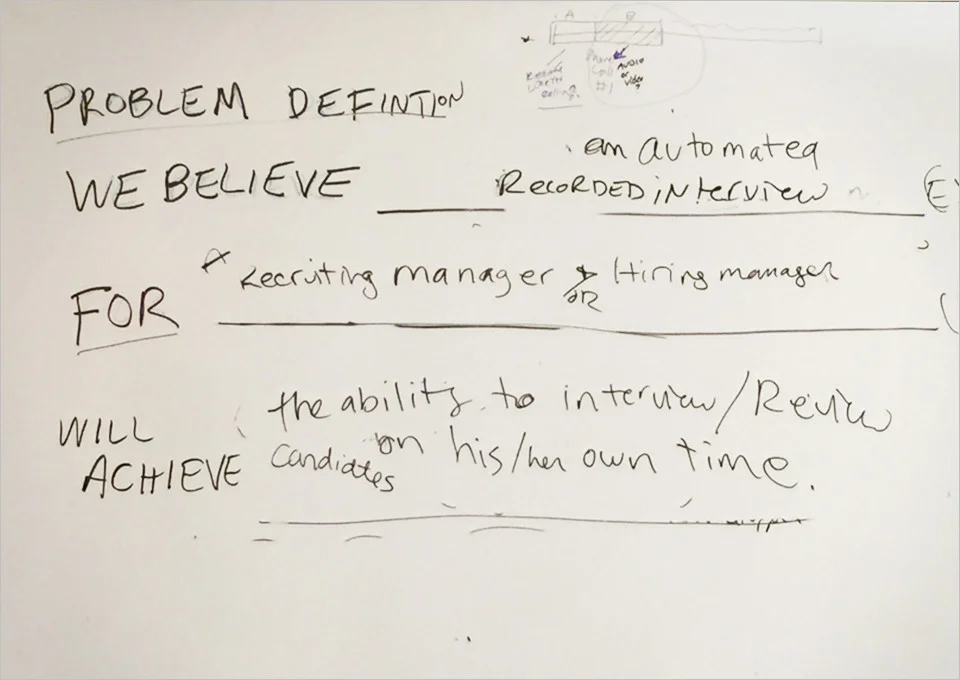 A B
Phone
Call AUDIO
#1 or
Video
?
PROBLEM DEFINTION
an automated
WE BELIEVE RECORDED interview
FOR Recruiting manager OR Hiring manager
WILL the ability to interview/Review
ACHIEVE candidates on his/her own time.